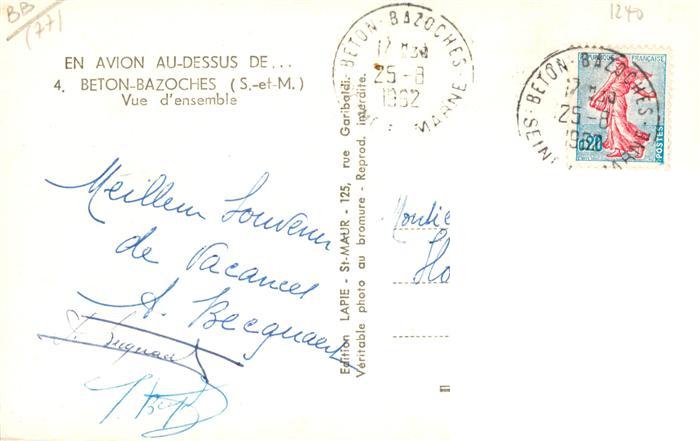 BB
(77)
1240
EN AVION AU-DESSUS DE...
4. BETON-BAZOCHES (S.-et-M.)
Vue d'ensemble
BETON-BAZOCHES
17 H30
25-8
1962
MARNE
BETON-BAZOCHES
25-8
SEINE
MARNE
REPUBLIQUE FRANÇAISE
0,20
POSTES
Edition LAPIE - St-MAUR - 125, rue Garibaldi.
Véritable photo au bromure - Reprod. interdite.
Meilleur Souvenir
de Vacances
A. Becquaert